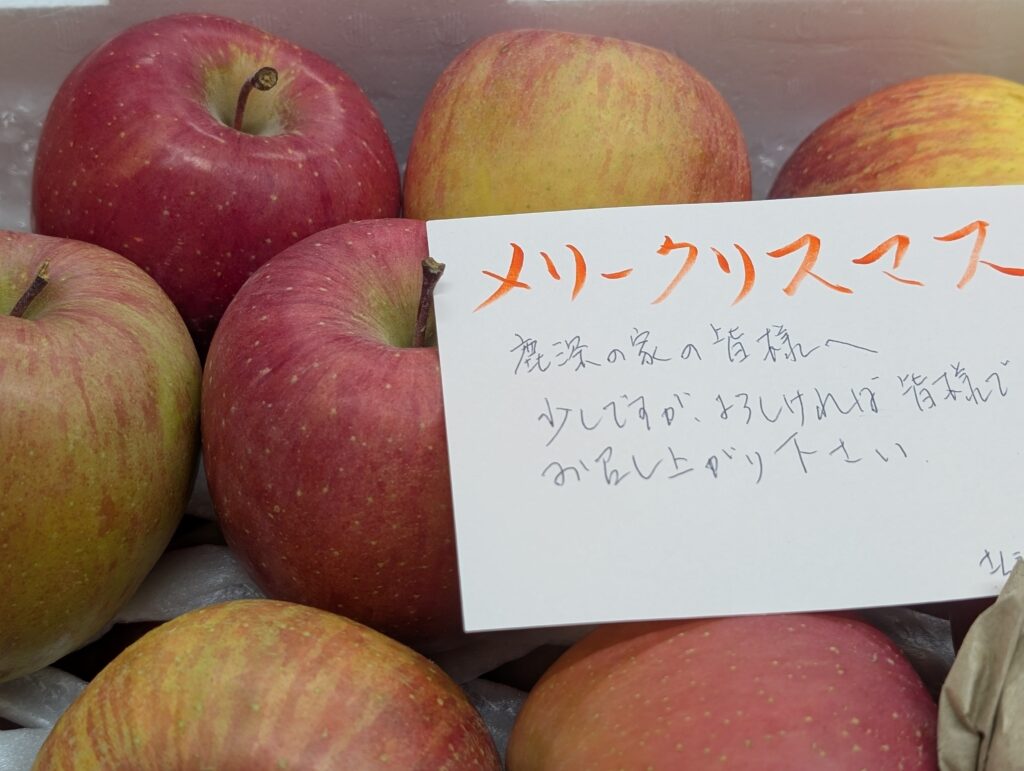 メリークリスマス
鹿深の家の皆様へ
少しですが、よろしければ皆様で
お召し上がり下さい.